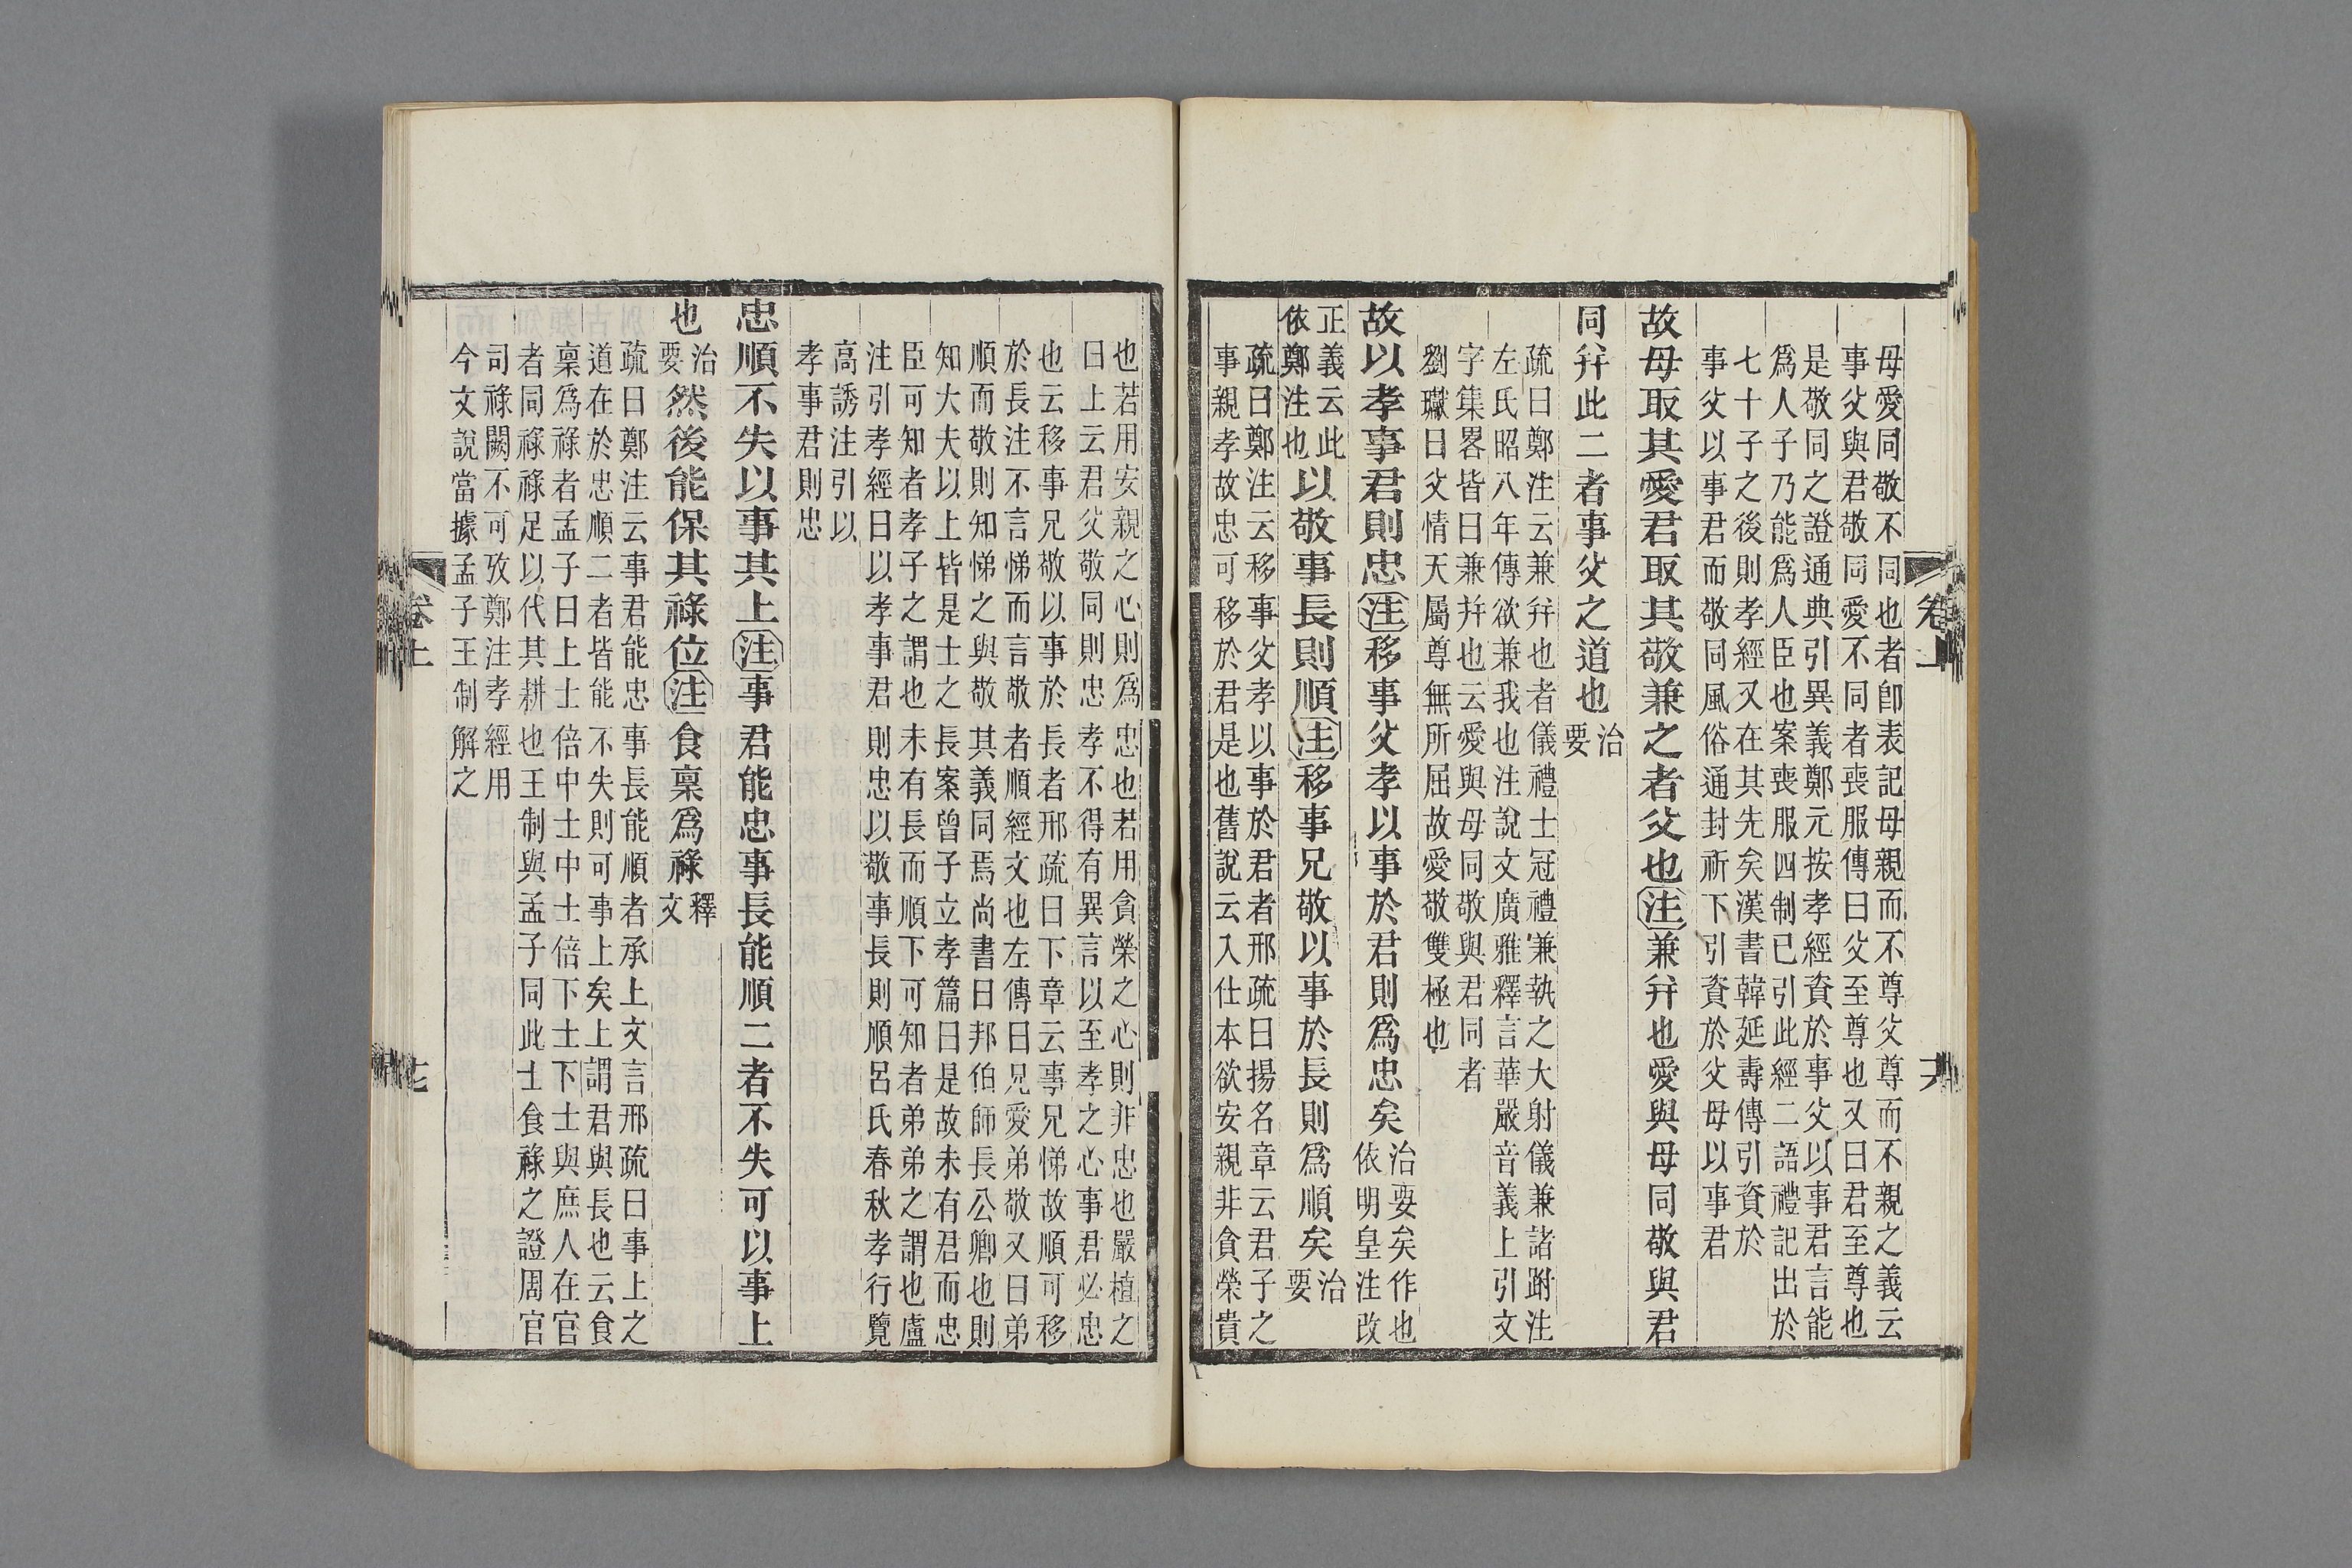 卷上
母愛同敬不同也者卽表記母親而不尊父尊而不親之義云
事父與君敬同愛不同者喪服傳曰父至尊也又曰君至尊也
是敬同之證通典引異義鄭元按孝經資於事父以事君言能
爲人子乃能爲人臣也案喪服四制已引此經二語禮記出於
七十子之後則孝經又在其先矣漢書韓延壽傳引資於
事父以事君而敬同風俗通封祈下引資於父母以事君
故母取其愛君取其敬兼之者父也注兼幷也愛與母同敬與君
同幷此二者事父之道也治要
疏曰鄭注云兼幷也者儀禮士冠禮兼執之大射儀兼諸跗注
左氏昭八年傳欲兼我也注說文廣雅釋言華嚴音義上引文
字集畧皆曰兼幷也云愛與母同敬與君同者
劉瓛曰父情天屬尊無所屈故愛敬雙極也
故以孝事君則忠注移事父孝以事於君則爲忠矣治要矣作也依明皇注改
正義云此依鄭注也以敬事長則順注移事兄敬以事於長則爲順矣治要
疏曰鄭注云移事父孝以事於君者邢疏曰揚名章云君子之
事親孝故忠可移於君是也舊說云入仕本欲安親非貪榮貴
也若用安親之心則爲忠也若用貪榮之心則非忠也嚴植之
曰上云君父敬同則忠孝不得有異言以至孝之心事君必忠
也云移事兄敬以事於長者邢疏曰下章云事兄悌故順可移
於長注不言悌而言敬者順經文也左傳曰兄愛弟敬又曰弟
順而敬則知悌之與敬其義同焉尚書曰邦伯師長公卿也則
知大夫以上皆是士之長案曾子立孝篇曰是故未有君而忠
臣可知者孝子之謂也未有長而順下可知者弟弟之謂也盧
注引孝經曰以孝事君則忠以敬事長則順呂氏春秋孝行覽
高誘注引以
孝事君則忠
忠順不失以事其上注事君能忠事長能順二者不失可以事上
也治要然後能保其祿位注食稟爲祿釋文
疏曰鄭注云事君能忠事長能順者承上文言邢疏曰事上之
道在於忠順二者皆能不失則可事上矣上謂君與長也云食
稟爲祿者孟子曰上士倍中士中士倍下士下士與庶人在官
者同祿祿足以代其耕也王制與孟子同此士食祿之證周官
司祿闕不可攷鄭注孝經用
今文說當據孟子王制解之
卷上